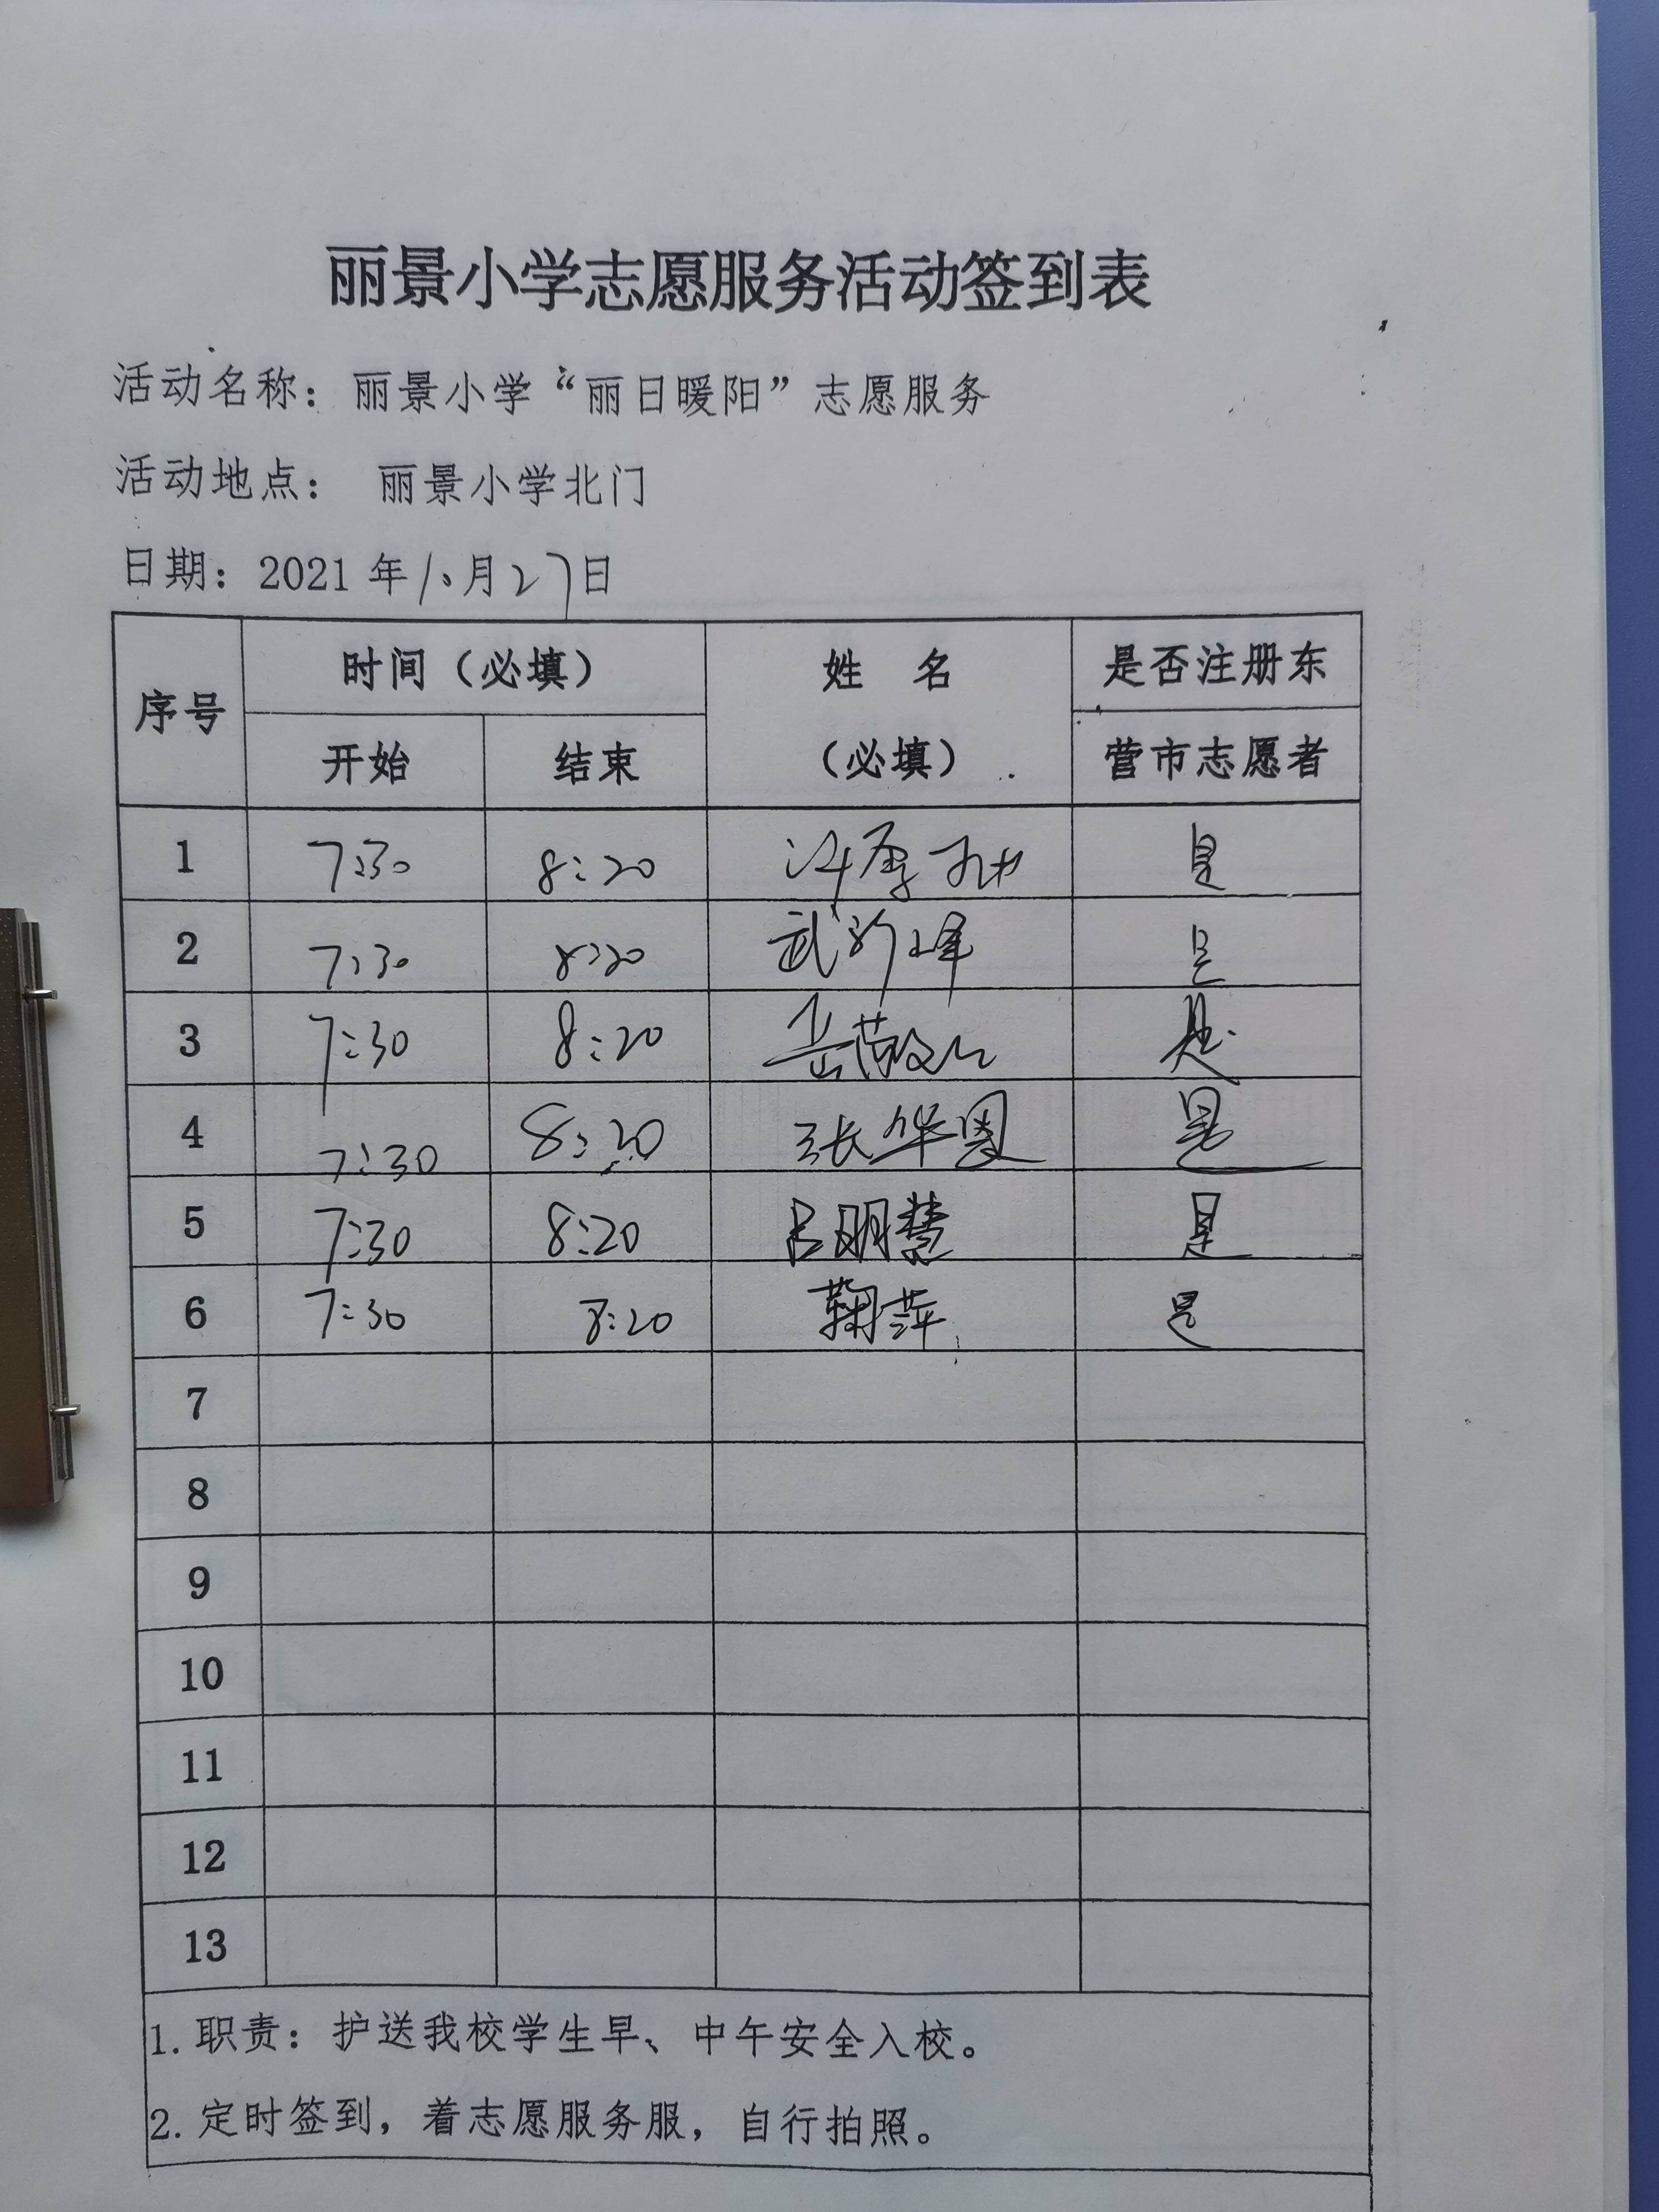 丽景小学志愿服务活动签到表
活动名称：丽景小学“丽日暖阳”志愿服务
活动地点： 丽景小学北门
日期：2021年10月27日
序号 时间（必填） 姓 名 是否注册东
开始 结束 （必填） 营市志愿者
1 7:30 8:20 是
2 7:30 8:20 武新峰 是
3 7:30 8:20 是
4 7:30 8:20 张华 是
5 7:30 8:20 吕明慧 是
6 7:30 8:20 鞠萍 是
7
8
9
10
11
12
13
1.职责：护送我校学生早、中午安全入校。
2.定时签到，着志愿服务服，自行拍照。